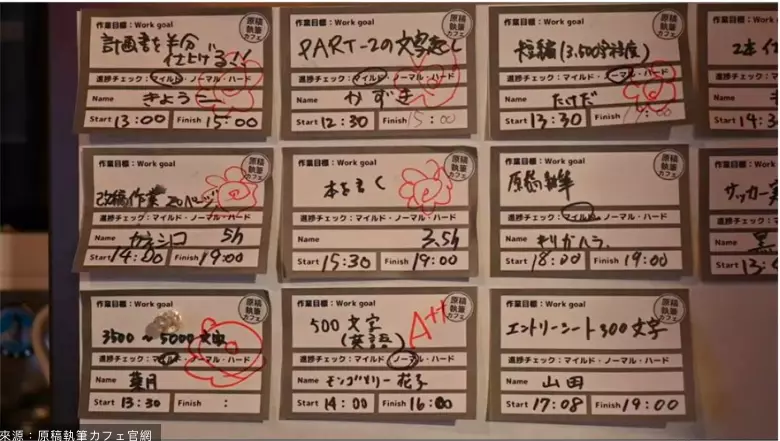 作業目標：Work goal
原稿執筆カフェ
計画書を半分
仕上げる!!
進捗チェック：マイルド・ノーマル・ハード
Name きょうこ
Start 13:00 Finish 15:00
作業目標：Work goal
原稿執筆カフェ
PART-2の文字起し
進捗チェック：マイルド・ノーマル・ハード
Name かずき
Start 12:30 Finish 15:00
作業目標：Work goal
原稿執筆カフェ
短編(3,500字程度)
進捗チェック：マイルド・ノーマル・ハード
Name たけだ
Start 13:30 Finish 19:00
作業目標：W
2本
進捗チェック：マ
Name
Start 14:3
作業目標：Work goal
原稿執筆カフェ
改稿作業 20ページ
進捗チェック：マイルド・ノーマル・ハード
Name カネシロ 5h
Start 14:00 Finish 19:00
作業目標：Work goal
原稿執筆カフェ
本を書く
進捗チェック：マイルド・ノーマル・ハード
Name 3.5h
Start 15:30 Finish 19:00
作業目標：Work goal
原稿執筆カフェ
原稿執筆
進捗チェック：マイルド・ノーマル・ハード
Name キリガハラ
Start 18:00 Finish 19:00
作業目標：W
サッカー
進捗チェック：マ
Name 黒
Start 13:
作業目標：Work goal
原稿執筆カフェ
3500～5000文字
進捗チェック：マイルド・ノーマル・ハード
Name 葉月
Start 13:30 Finish :
作業目標：Work goal
原稿執筆カフェ
500文字
(英語)
A++
進捗チェック：マイルド・ノーマル・ハード
Name モンゴメリー花子
Start 14:00 Finish 16:00
作業目標：Work goal
原稿執筆カフェ
エントリーシート300文字
進捗チェック：マイルド・ノーマル・ハード
Name 山田
Start 17:08 Finish 19:00
來源：原稿執筆カフェ官網